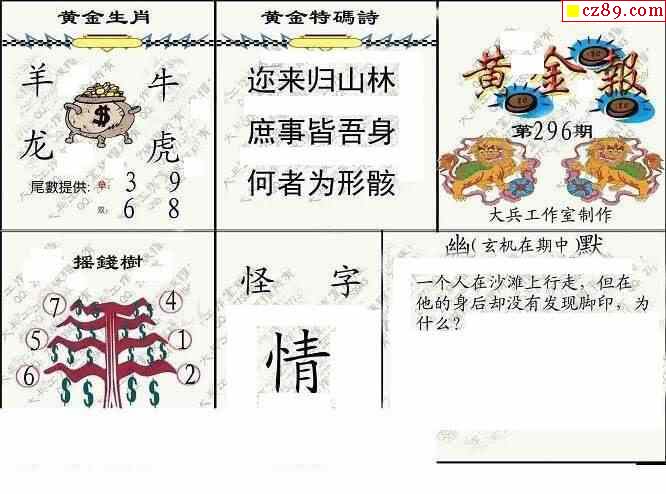 cz89.com
黄金生肖
羊 牛
$
龙 虎
尾數提供: 单: 3 9
双: 6 8
黄金特碼詩
迩来归山林
庶事皆吾身
何者为形骸
黄金報
第296期
大兵工作室制作
摇錢樹
7 4
5 1
6 2
$ $ $ $ $ $
怪 字
情
幽(玄机在期中)默
一个人在沙滩上行走，但在
他的身后却没有发现脚印，为
什么？